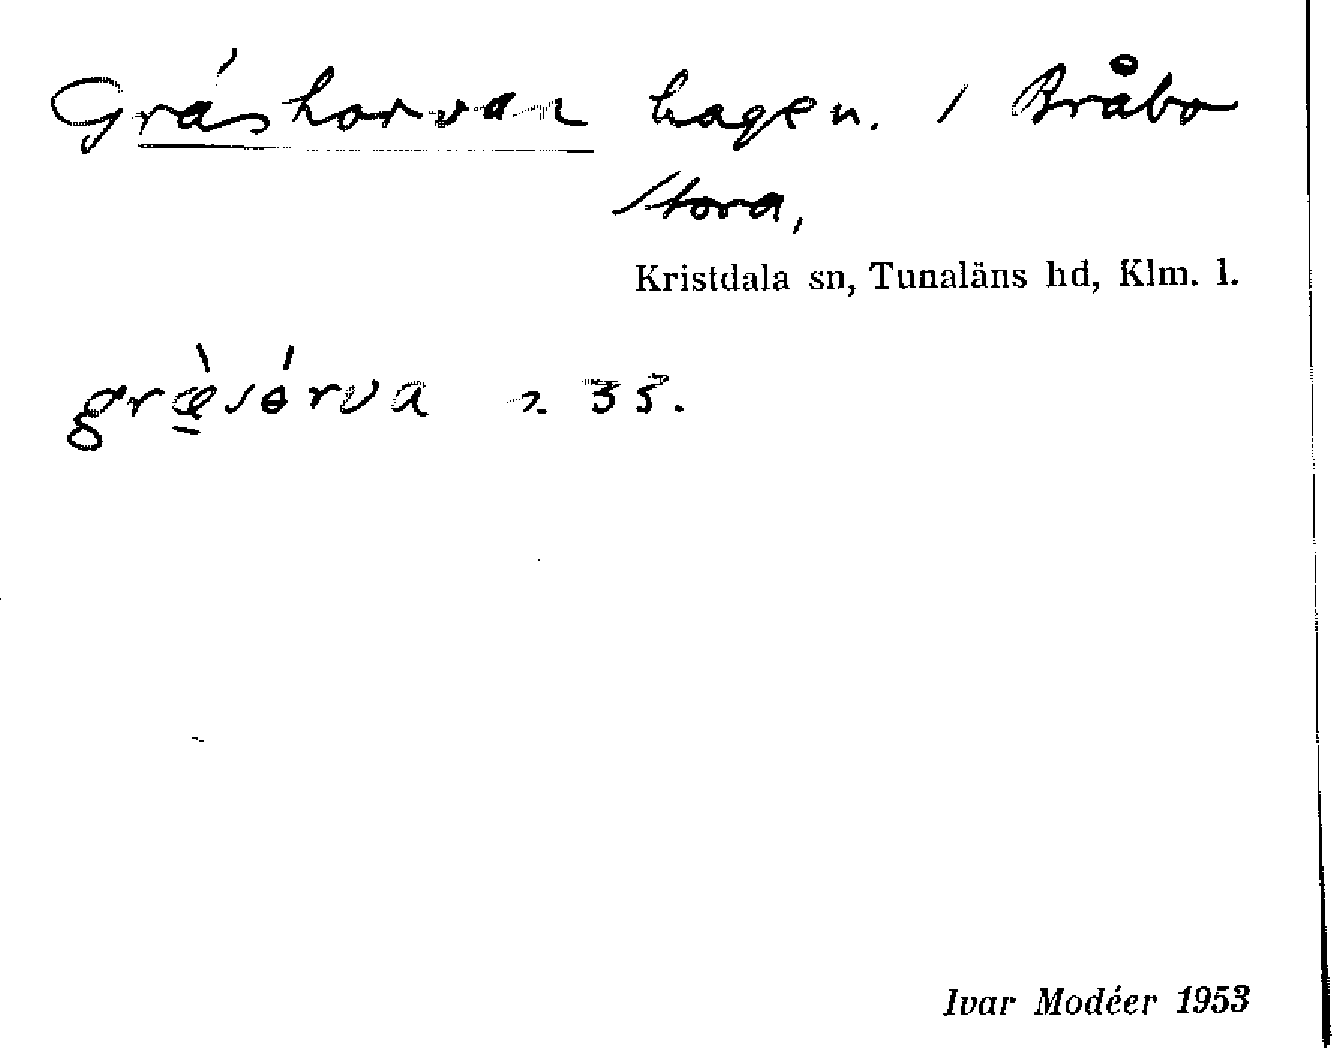 Gráshorvan hagen. / Bråbo
Stora,
Kristdala sn, Tunaläns hd, Klm. l.
græ̱̀sǿrva n. 33.
Ivar Modéer 1953